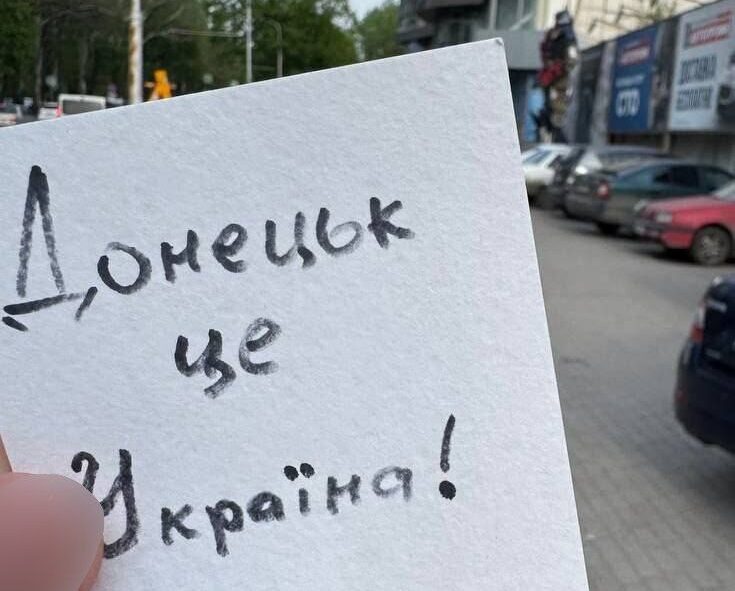 Донецьк
це
Україна!
СТО
ДОСТАВКА
БЕСПЛАТНО